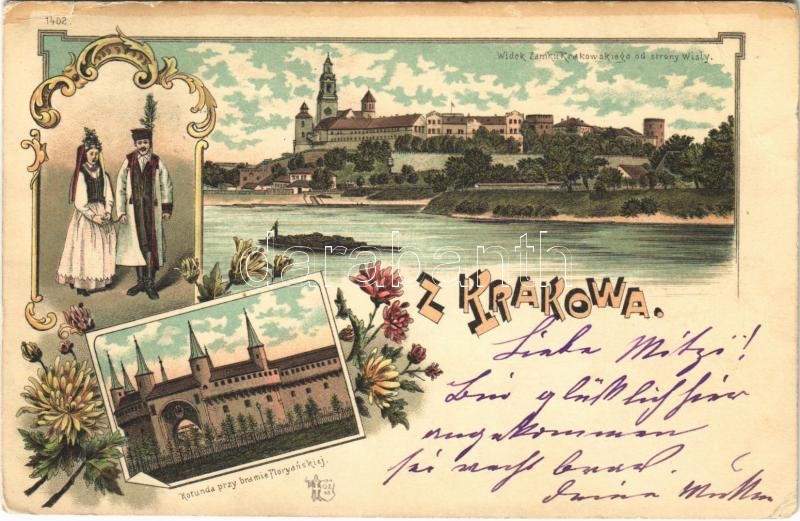 1402.
Widok Zamku Krakowskiego od strony Wisły.
darabanth
Z KRAKOWA.
Liebe Mitzi!
Bin glücklich hier
angekommen
sei recht brav.
Deine
Rotunda przy bramie Floryańskiej.